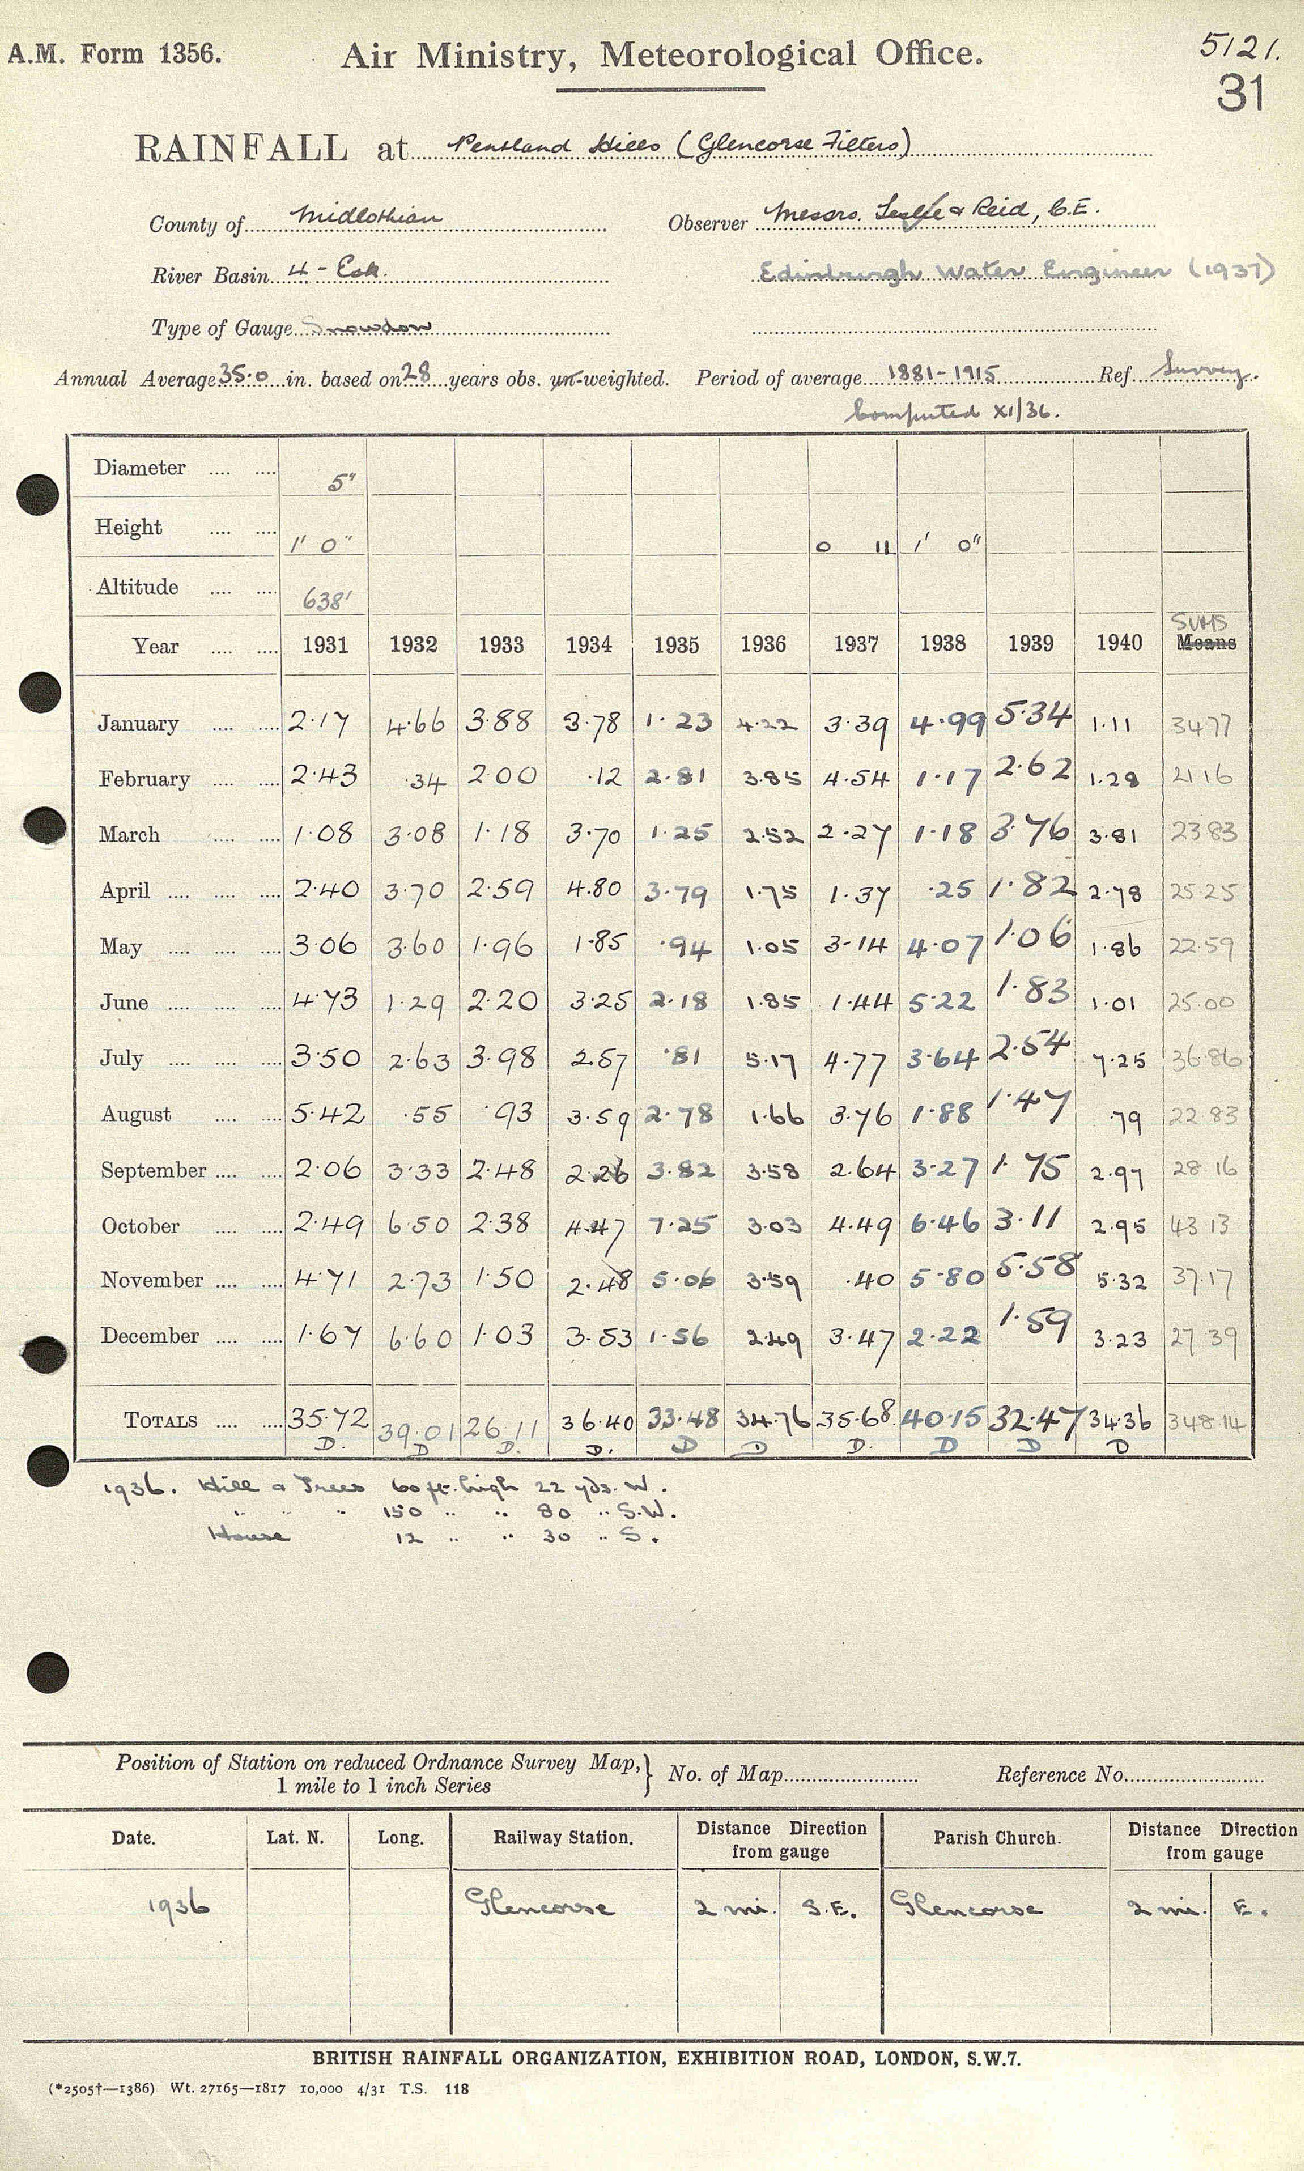 A.M. Form 1356. Air Ministry, Meteorological Office. 5121.
31
RAINFALL at Pentland Hills (Glencorse Filters)
County of Midlothian Observer Messrs. Leslie & Reid, C.E.
River Basin 4 - Esk. Edinburgh Water Engineer (1937)
Type of Gauge Snowdon
Annual Average 35.0 in. based on 28 years obs. un-weighted. Period of average 1881-1915 Ref. Survey.
Computed XI/36.
Diameter 5"
Height 1' 0" 0 11 1' 0"
Altitude 638'
SUMS
Year 1931 1932 1933 1934 1935 1936 1937 1938 1939 1940 Means
January 2.17 4.66 3.88 3.78 1.23 4.22 3.39 4.99 5.34 1.11 34.77
February 2.43 .34 2.00 .12 2.81 3.85 4.54 1.17 2.62 1.28 21.16
March 1.08 3.08 1.18 3.70 1.25 2.52 2.27 1.18 3.76 3.81 23.83
April 2.40 3.70 2.59 4.80 3.79 1.75 1.37 .25 1.82 2.78 25.25
May 3.06 3.60 1.96 1.85 .94 1.05 3.14 4.07 1.06 1.86 22.59
June 4.73 1.29 2.20 3.25 2.18 1.85 1.44 5.22 1.83 1.01 25.00
July 3.50 2.63 3.98 2.57 .81 5.17 4.77 3.64 2.54 7.25 36.86
August 5.42 .55 .93 3.59 2.78 1.66 3.76 1.88 1.47 79 22.83
September 2.06 3.33 2.48 2.26 3.82 3.58 2.64 3.27 1.75 2.97 28.16
October 2.49 6.50 2.38 4.47 7.25 3.03 4.49 6.46 3.11 2.95 43.13
November 4.71 2.73 1.50 2.48 5.06 3.59 .40 5.80 5.58 5.32 37.17
December 1.67 6.60 1.03 3.53 1.56 2.49 3.47 2.22 1.59 3.23 27.39
TOTALS 35.72 39.01 26.11 36.40 33.48 34.76 35.68 40.15 32.47 34.36 348.14
D. D D. D. D D D. D D D
1936. Hill & Trees 60 ft. high 22 yds. W.
" " " 150 " " 80 " S.W.
House 12 " " 30 " S.
Position of Station on reduced Ordnance Survey Map,} No. of Map Reference No.
1 mile to 1 inch Series
Date. Lat. N. Long. Railway Station. Distance Direction Parish Church. Distance Direction
from gauge from gauge
1936 Glencorse 2 mi. S.E. Glencorse 2 mi. E.
BRITISH RAINFALL ORGANIZATION, EXHIBITION ROAD, LONDON, S.W.7.
(*2505†—1386) Wt. 27165—1817 10,000 4/31 T.S. 118